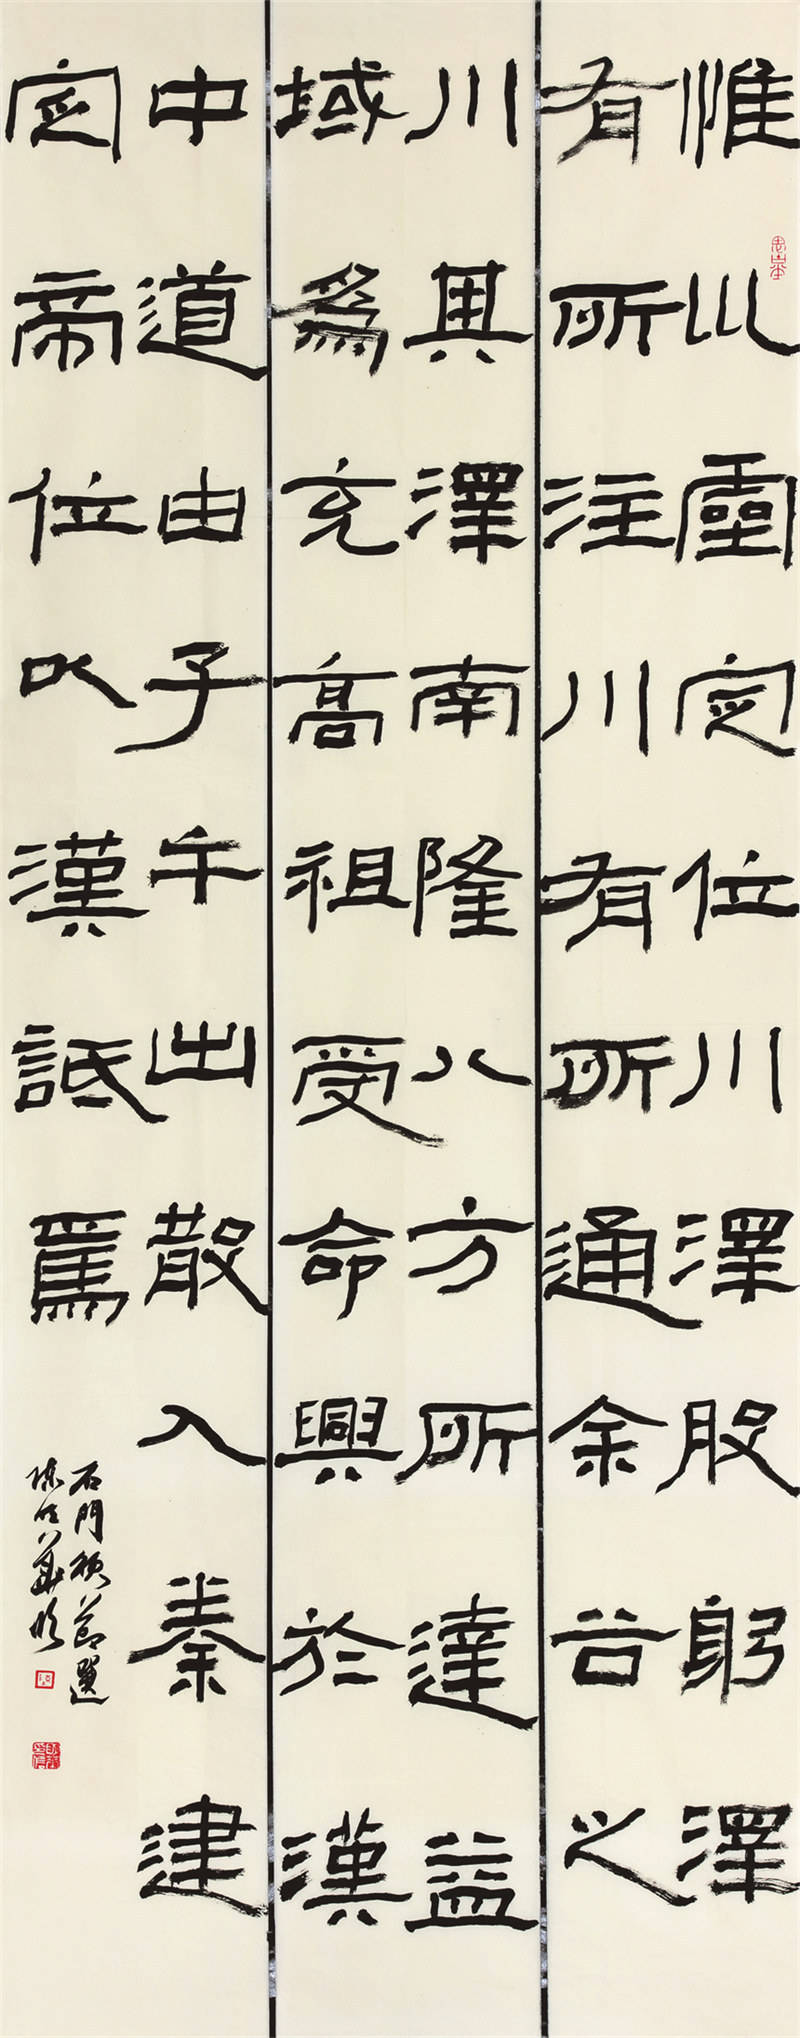 惟坤靈定位川澤股躬澤
有所注川有所通余谷之
川其澤南隆八方所達益
域爲充高祖受命興於漢
中道由子午出散入秦建
定帝位以漢詆焉
石門頌節選